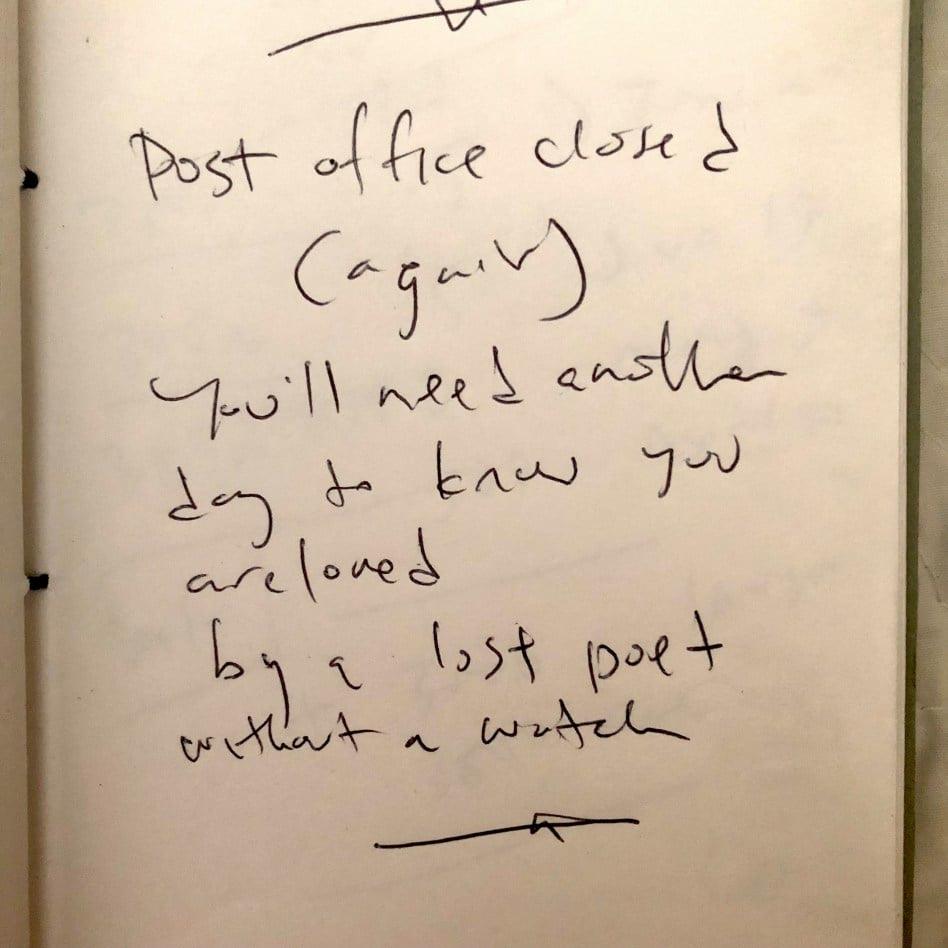 Post office closed
(again)
You'll need another
day to know you
are loved
by a lost poet
without a watch